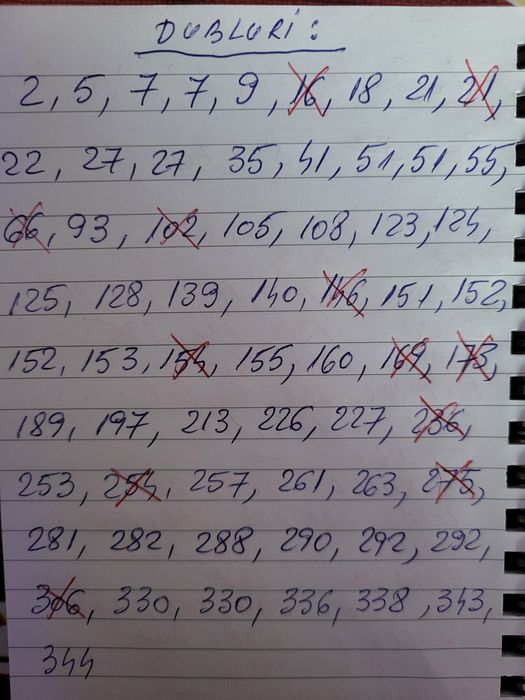 DUBLURI:
2, 5, 7, 7, 9, 16, 18, 21, 21,
22, 27, 27, 35, 41, 51, 51, 55,
66, 93, 102, 105, 108, 123, 124,
125, 128, 139, 140, 146, 151, 152,
152, 153, 154, 155, 160, 169, 173,
189, 197, 213, 226, 227, 236,
253, 254, 257, 261, 263, 275,
281, 282, 288, 290, 292, 292,
306, 330, 330, 336, 338, 343,
344